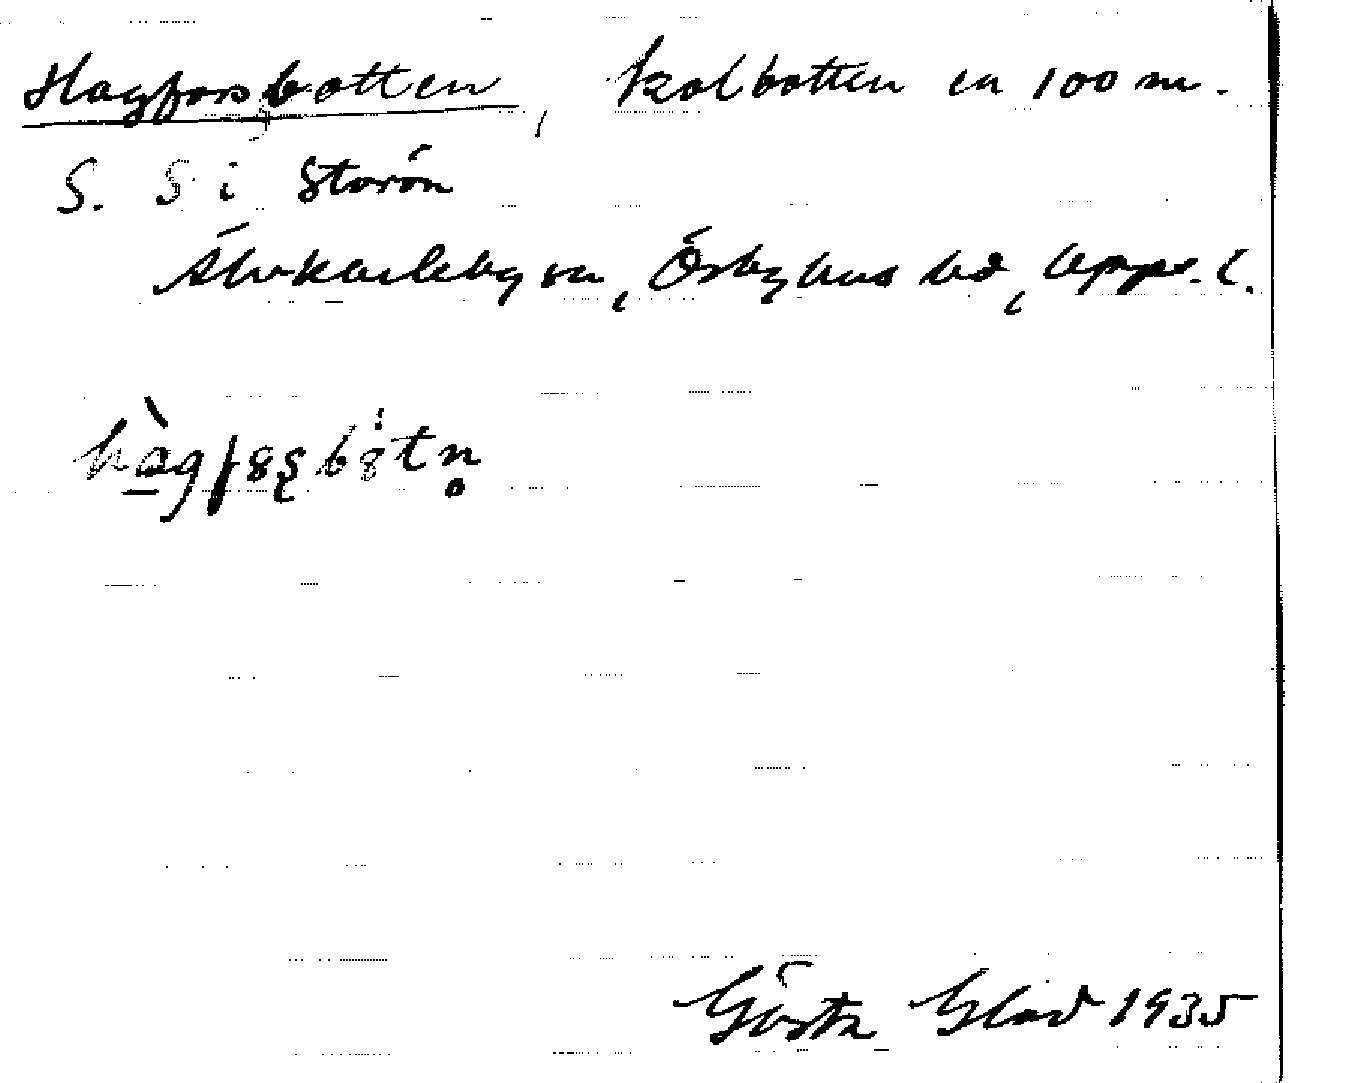 Hagforsbotten, kolbotten en 100 m.
S. S i Storön
Älvkarleby sn, Örbyhus hd, Upps. l.
Gösta Glad 1935